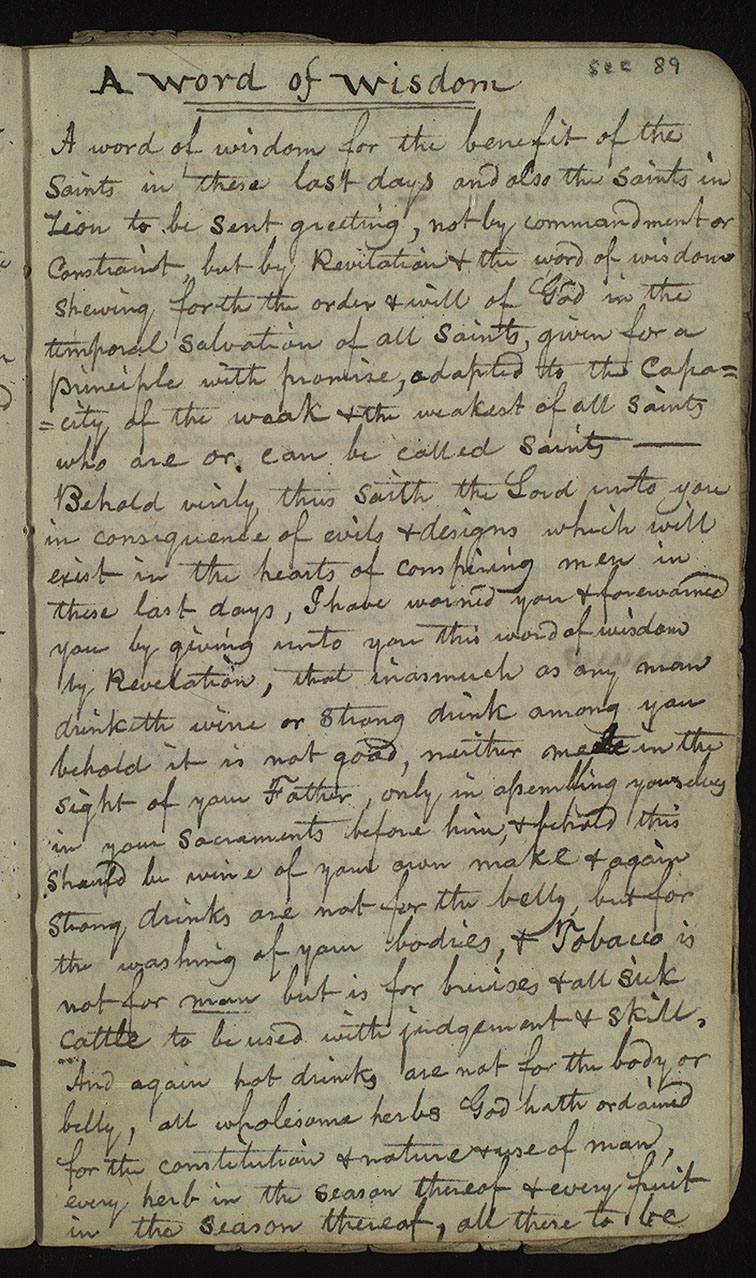 sec 89
A word of wisdom
A word of wisdom for the benefit of the
Saints in these last days and also the Saints in
Zion to be sent greeting, not by commandment or
Constraint, but by Revelation & the word of wisdom
shewing forth the order & will of God in the
temporal salvation of all Saints, given for a
principle with promise, adapted to the Capa=
=city of the weak & the weakest of all Saints
who are or can be called Saints —
Behold verily thus saith the Lord unto you
in consequence of evils & designs which will
exist in the hearts of conspiring men in
these last days, I have warned you & forewarned
you by giving unto you this word of wisdom
by Revelation, that inasmuch as any man
drinketh wine or strong drink among you
behold it is not good, neither mete in the
sight of your Father, only in assembling yourselves
in your Sacraments before him, & behold this
should be wine of your own make & again
Strong drinks are not for the belly, but for
the washing of your bodies, & Tobacco is
not for man but is for bruises & all sick
Cattle to be used with judgement & skill,
And again hot drinks are not for the body or
belly, all wholesome herbs God hath ordained
for the constitution & nature & use of man,
every herb in the season thereof & every fruit
in the season thereof, all these to be